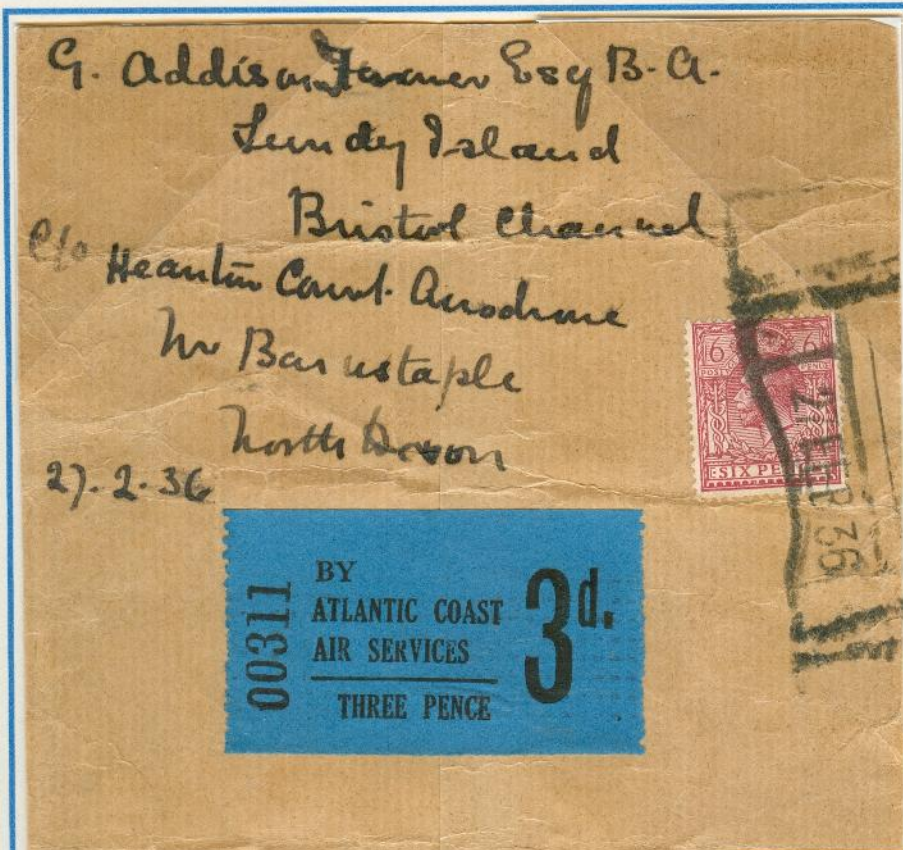 G. Addison Farmer Esq B.A.
Lundy Island
Bristol Channel
c/o Heanton Court Aerodrome
Nr Barnstaple
North Devon
27.2.36
6 6
POSTAGE PENCE
SIX PE
FEB 36
00311
BY
ATLANTIC COAST
AIR SERVICES
THREE PENCE
3d.